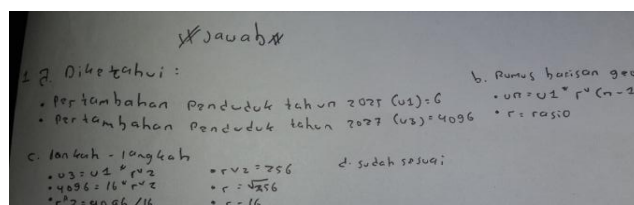 *Jawab*
1 a. Diketahui :
• Pertambahan Penduduk tahun 2025 (U1) = 6
• Pertambahan Penduduk tahun 2027 (U3) = 4096
b. Rumus barisan geo
• Un = U1 * r^(n-1
• r = rasio
c. langkah - langkah
• U3 = U1 * r^2
• 4096 = 16 * r^2
• r^2 = 4096 / 16
• r^2 = 256
• r = √256
• r = 16
d. sudah sesuai